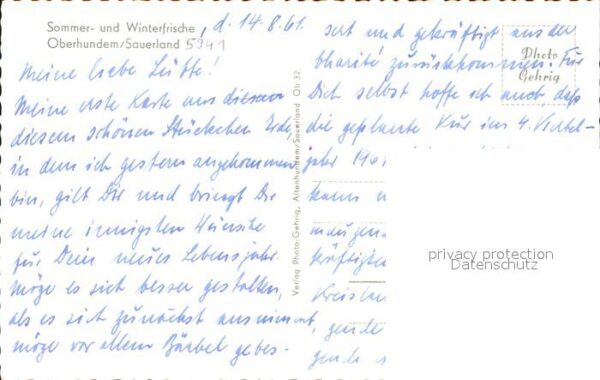 Sommer- und Winterfrische, d. 14.8.61.
Oberhundem/Sauerland 5941
Meine liebe Lütte!
Meine erste Karte aus diesem
diesem schönen Stückchen Erde,
in dem ich gestern angekommen
bin, gilt Dir und bringt Dir
meine innigsten Wünsche
für Dein neues Lebensjahr.
Möge es sich besser gestalten,
als es sich zunächst ausnimmt,
möge vor allem Bärbel gebes-
Verlag Photo-Gehrig, Altenhundem/Sauerland Ob 32
sert und gekräftigt aus der
Charité zurückkommen. Für
Dich selbst hoffe ich auch, daß
die geplante Kur im 4. Viertel-
jahr 196
kann
kräftigte
Kreislau
gende
Photo
Gehrig
privacy protection
Datenschutz